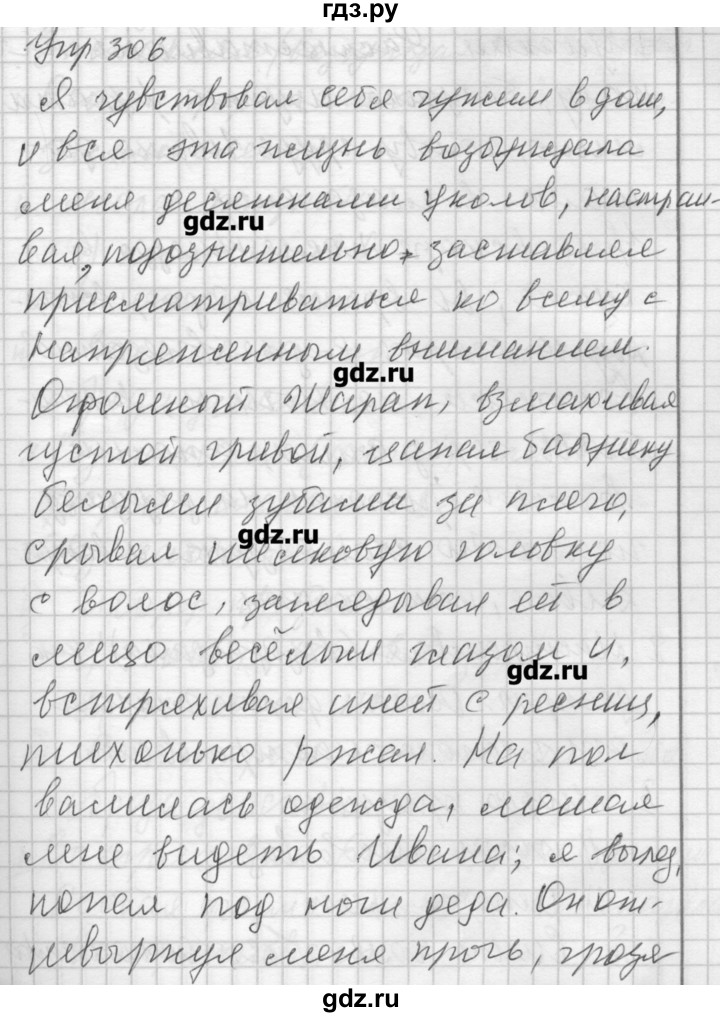 гдз.ру
Упр 306
Я чувствовал себя чужим в доме,
и вся эта жизнь возбуждала
меня десятками уколов, настраи-
gdz.ru
вая, подозрительно, заставляя
присматриваться ко всему с
напряженным вниманием.
gdz.ru
Огромный Шарап, взмахивая
густой гривой, цапал бабушку
белыми зубами за плечо,
gdz.ru
срывал шёлковую головку
с волос, заглядывая ей в
лицо весёлым глазом и,
gdz.ru
встряхивая иней с ресниц,
тихонько ржал. На пол
валилась одежда, мешая
мне видеть Ивана; я вылез,
попал под ноги деда. Он от-
швырнул меня прочь, грозя
gdz.ru